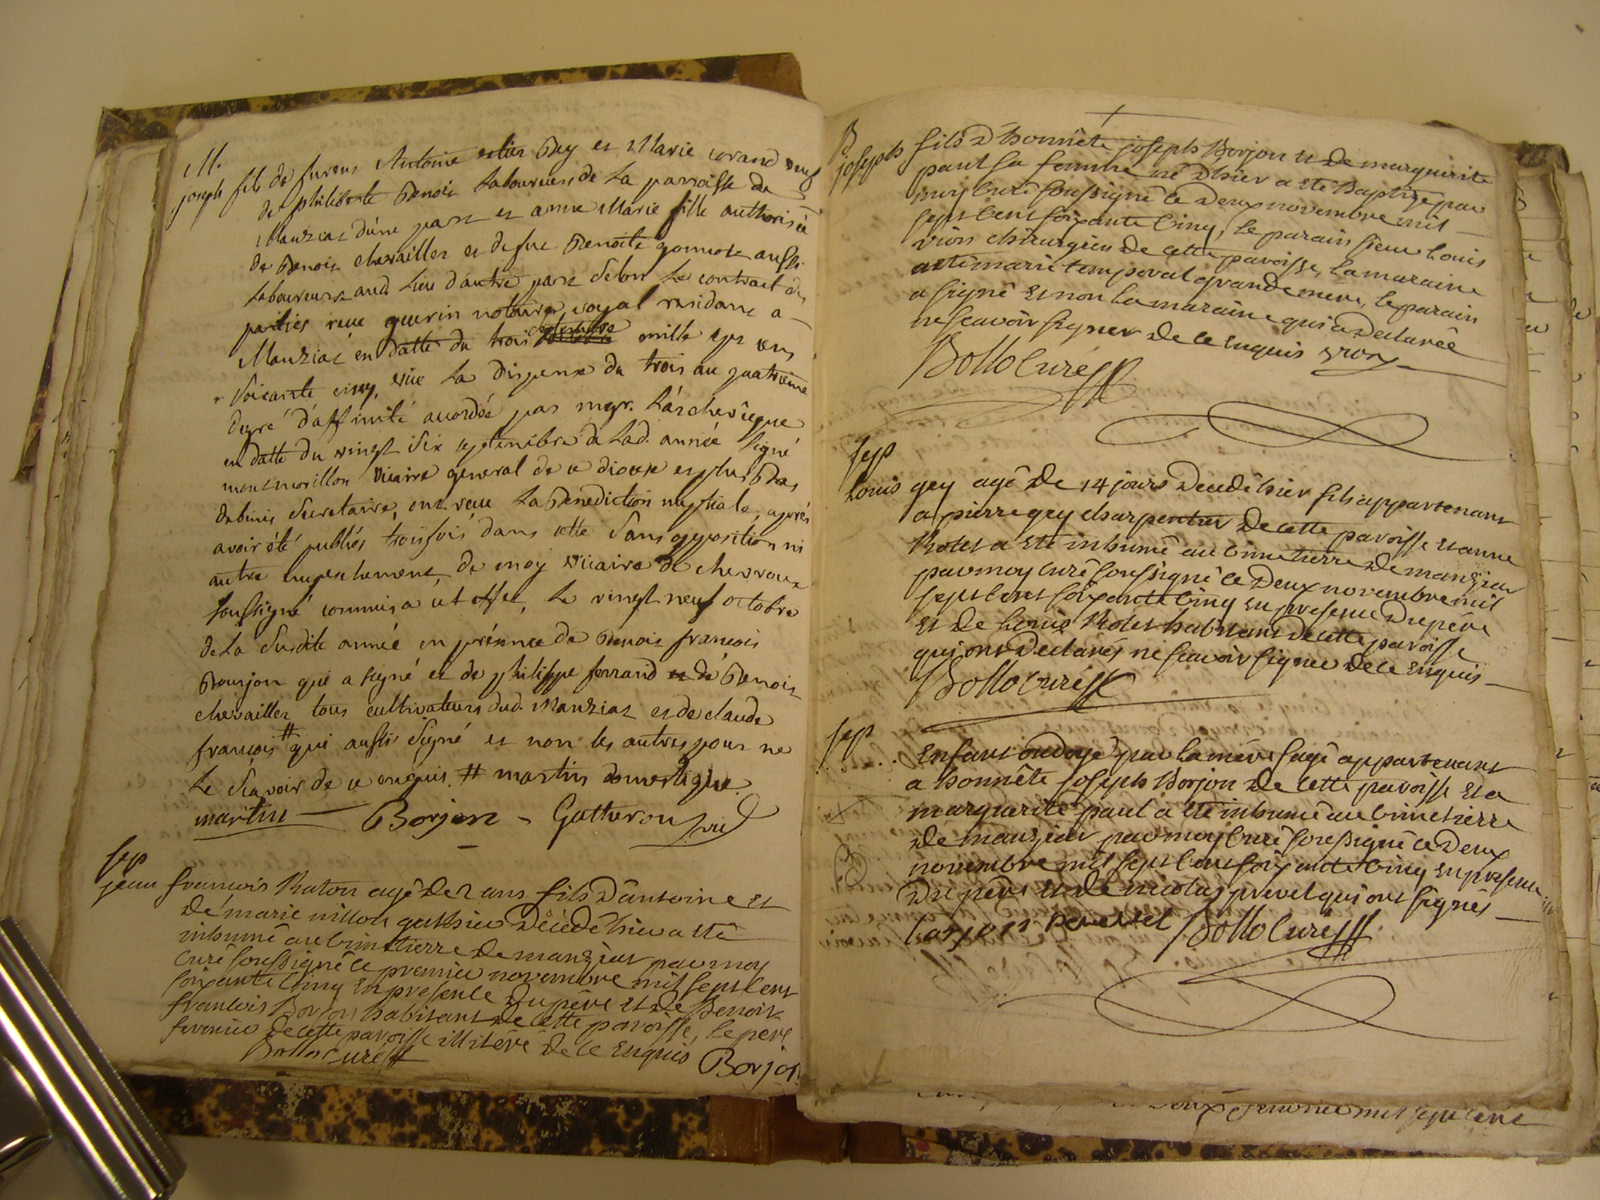 M.
joseph fils de furent Antoine Rey et Marie vorand veuf
de philiberte Benoit Laboureurs de La paroisse de
Manziat d'une part et anne Marie fille authorisée
de Benois chevailler et de feue Benoite gonnot aussi
Laboureurs aud. Lieu d'autre part selon Le contract des
parties reçu guerin notaire royal residant a
Manziat en datte du trois septembre mille sept cens
soixante cinq, vue La dispense du trois au quatrième
degré d'affinité accordée par mgr. L'archevêque
en datte du vingt six septembre de Lad. année signé
montmorillon vicaire general de ce diocese et plus Bas
secretaire, ont reçu La Benediction nuptiale, après
avoir été publiés trois fois dans cette sans opposition ni
autre empechement, de moy vicaire de chevroux
soussigné commis a cet effet, Le vingt neuf octobre
de La susdite année en présence de Benois francois
Bourjon qui a signé et de philippe ferrand et de Benois
chevailler tous cultivateurs dud. Manziat et de claude
francois # qui aussi signé et non les autres pour ne
Le sçavoir de ce enquis. # martin domestique.
martin Borjon - Gatheron vic.
sep
jean francois Raton agé de 2 ans fils d'antoine et
de marie millon gathier décédé hier a eté
inhumé au cimetierre de manziat par moy
curé soussigné le premier novembre mil sept cent
soixante cinq en presence du père et de Benoit
francois Borjon habitant de cette paroisse, le père
de cette paroisse illitéré de ce enquis Borjon
Bollo curé
B
joseph fils d'honnête joseph Borjon et de marguerite
paul sa femme né d'hier a eté Baptizé par
moy curé soussigné le deux novembre mil
sept cent soixante cinq, le parain sieur Louis
vion chirurgien de cette paroisse, la maraine
a eté marie temporal grande mere, le parain
a signé et non la maraine qui a declarée
ne scavoir signer de ce enquis vion
Bollo curé
sep
Louis gey agé de 14 jours decedé hier fils appartenant
a pierre gey charpentier de cette paroisse et anne
Rolet a eté inhumé au cimetierre de manziat
par moy curé soussigné le deux novembre mil
sept cent soixante cinq en presence du père
et de Louis Rolet habitant de cette paroisse
qui ont declarés ne scavoir signer de ce enquis
Bollo curé
sep
Enfant ondoyé par la mère sage appartenant
a honnête joseph Borjon de cette paroisse et a
marguerite paul a eté inhumé au cimetierre
de manziat par moy curé soussigné le deux
novembre mil sept cent soixante cinq en presence
du père et de nicolas prevel qui ont signés
borjon prevel Bollo curé
deux janvier mil sept cent